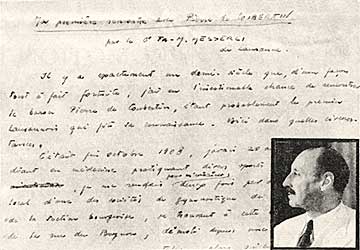 Ma première rencontre avec Pierre de COUBERTIN
par le Dr Fr.-M. MESSERLI
de Lausanne.
Il y a exactement un demi-siècle que, d'une façon
tout à fait fortuite, j'ai eu l'inestimable chance de rencontrer
le baron Pierre de Coubertin, étant probablement le premier
Lausannois qui fit sa connaissance. Voici dans quelles circons-
tances.
C'était fin octobre 1903,
diant en médecine pratiquant divers sports
je me rendais deux fois par
local d'une des sociétés de gymnastique de
de la section bourgeoise, se trouvant à cette
de la rue des